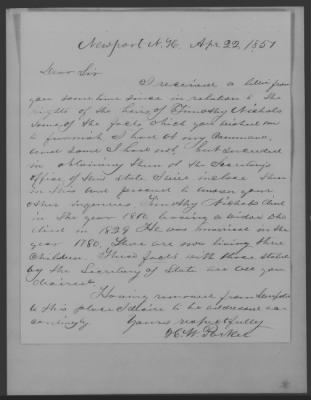 Newport N.H. Apr 22, 1851
Dear Sir
I received a letter from
you some time since in relation to the
rights of the heirs of Timothy Nichols
some of the facts which you wished me
to furnish I had at my command,
and some I had not, but succeeded
in obtaining them of the Secretary's
office of this state I here inclose them
in this and proceed to answer your
other inquiries. Timothy Nichols died
in the year 1816, leaving a widow who
died in 1829 He was married in the
year 1780. There are now living three
children. These facts with those stated
by the Secretary of State are all you
desired.
Having removed from
to this place I desire to be addressed ac-
cordingly. Yours respectfully
H. W. Parker